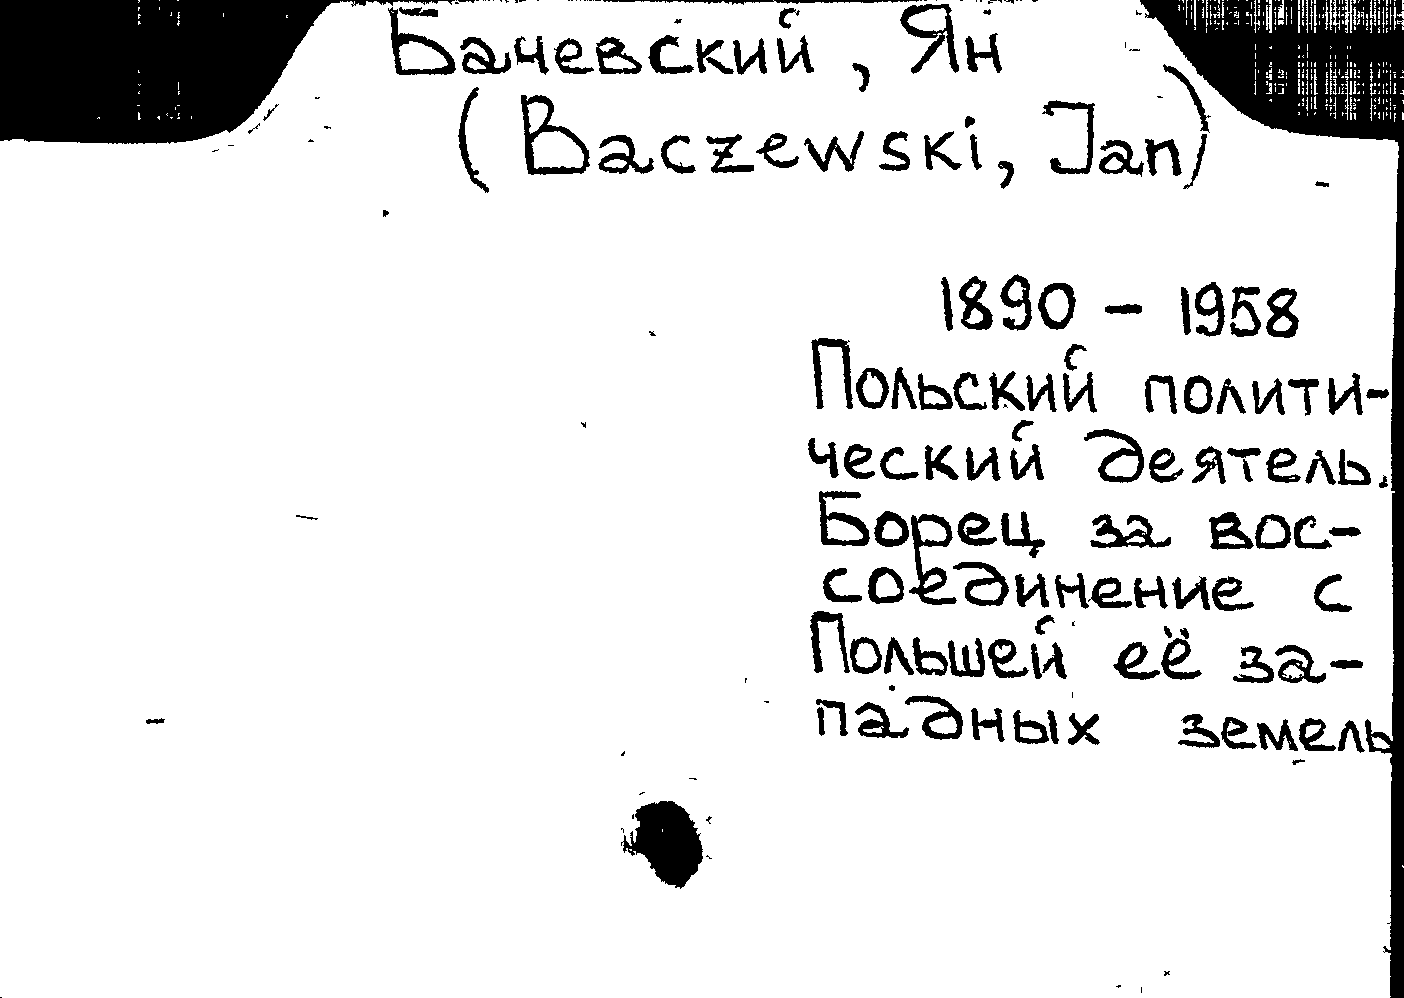 Бачевский, Ян
(Baczewski, Jan)
1890 - 1958
Польский полити-
ческий деятель.
Борец за вос-
соединение с
Польшей её за-
падных земель